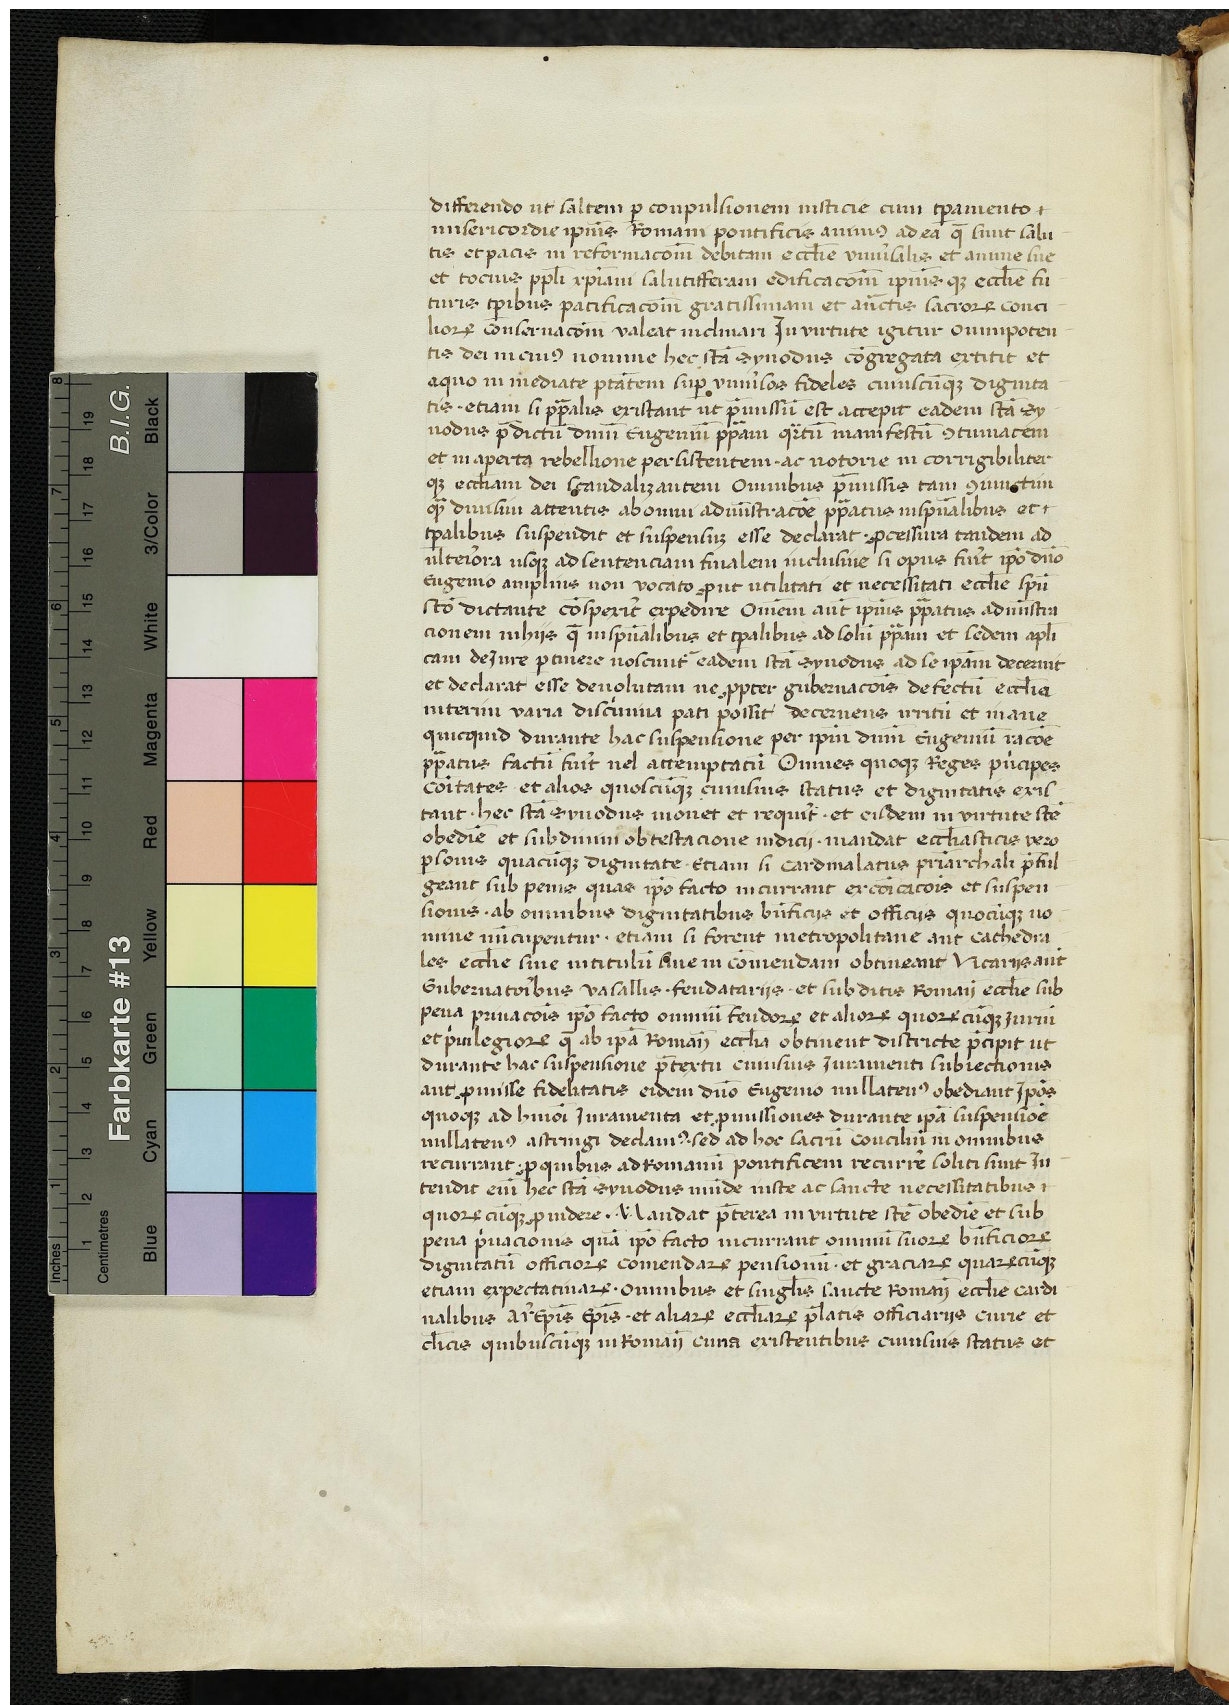 differendo ut saltem ꝑ conpulsionem iusticie cum tꝑamento ⁊
misericordie ipiūs Romani pontificis animꝰ ad ea q̄ sunt salu
tis et pacis in reformacōm debitam eccl̄ie vniūsalis et anime sue
et tocius ppl̄i xp̄iani salutifferam edificacōm ipiūs qꝫ eccl̄ie fu
turis tꝑibus pacificacōm gratissimam et aūctis sacroꝝ conci
lioꝝ Conseruacōm valeat inclinari In virtute igitur Omnipoten
tis dei in cuiꝰ nomine hec stā synodus cōgregata extitit et
a quo inmediate ptātem suꝑ vniūsos fideles cuiuscūqꝫ dignita
tis · etiam si pp̄alis existant ut p̄missū est accepit eadem stā sy
nodus p̄dictū dnm̄ Eugeniū pp̄am q̄rtū manifestū ꝯtumacem
et in aperta rebellione persistentem · ac notorie in corrigibiliter
qꝫ eccl̄iam dei scandalizantem Omnibus p̄missis tam ꝯiunctim
qꝫ̄ diuisim attentis ab omni admīstracōe pp̄atus in spūalibus et ⁊
tp̄alibus suspendit et suspensuꝫ esse declarat · ꝓcessura tandem ad
ulteriora usqꝫ ad sentenciam finalem inclusiue si opus fuīt ipō dnō
Eugenio amplius non vocato ꝓut utilitati et necessitati eccl̄ie spū
stō dictante cōsperit̄ expedire Omēm aūt ipiūs pp̄atus admīstra
cionem in hijs q̄ in spūalibus et tp̄alibus ad solū pp̄am et sedem apl̄i
cam de Jure ꝑtinere noscunt᷑ eadem stā synodus ad se ipām decernit
et declarat esse deuolutam ne ꝓpter gubernacōis defectū eccl̄ia
interim varia discimina pati possit decernens irritū et inane
quicquid durante hac suspensione per ipm̄ dnm̄ Eugeniū racōe
pp̄atus factū fuīt uel attemptatū Omnes quoqꝫ Reges pͥncipes
Coītates · et alios quoscūqꝫ cuiusuis status et dignitatis exis
tant · hec stā synodus monet et requirit̄ · et eisdem in virtute stē
obediē et sub diuini obtestacione iudicij · mandat eccl̄iasticis vero
ꝑsonis quacūqꝫ dignitate · Etiam si Cardinalatus priārchali p̄ful
geant sub penis quas ipō facto incurrant excōicacōis et suspen
sionis · ab omnibus dignitatibus bn̄ficijs et officijs quocūqꝫ no
mine nūcupentur · etiam si forent metropolitane aut Cathedra
les eccl̄ie siue in titulū siue in Comendam obtineant Vicarijs aut
Gubernatoribus vasallis · feudatarijs · et subditis Romaīj eccl̄ie sub
pena priuacōis ipō facto omniū feudoꝝ et alioꝝ quoꝝcūqꝫ Juriū
et pͥuilegioꝝ q̄ ab ipā Romaīj eccl̄ia obtinent districte p̄cipit ut
durante hac suspensione p̄textu cuiusuis Juramenti subiectionis
aut ꝓmisse fidelitatis eidem dnō Eugenio nullatenꝰ obediant Ipōs
quoqꝫ ad hmōi Juramenta et ꝓmissiones durante ipā suspensiōe
nullatenꝰ astringi declamꝰ · sed ad hoc sacrū Conciliū in omnibus
recurrant · ꝓ quibus ad Romanū pontificem recurrē soliti sunt In
tendit eiū hec stā synodus inide iuste ac sancte necessitatibus ⁊
quoꝝcūqꝫ ꝓuidere · Mandat p̄terea in virtute stē obediē et sub
pena pͥuacionis quā ipō facto incurrant omniū suoꝝ bn̄ficioꝝ
dignitatū officioꝝ Comendaꝝ pensionū · et graciaꝝ quaꝝcūqꝫ
etiam expectatiuaꝝ · Omnibus et singl̄is sancte Romaīj eccl̄ie Cardi
nalibus Ar̄Ep̄is Ep̄is · et aliaꝝ eccl̄iaꝝ p̄latis officiarijs Curie et
cl̄icis quibuscūqꝫ in Romaīj curia existentibus cuiusuis status et